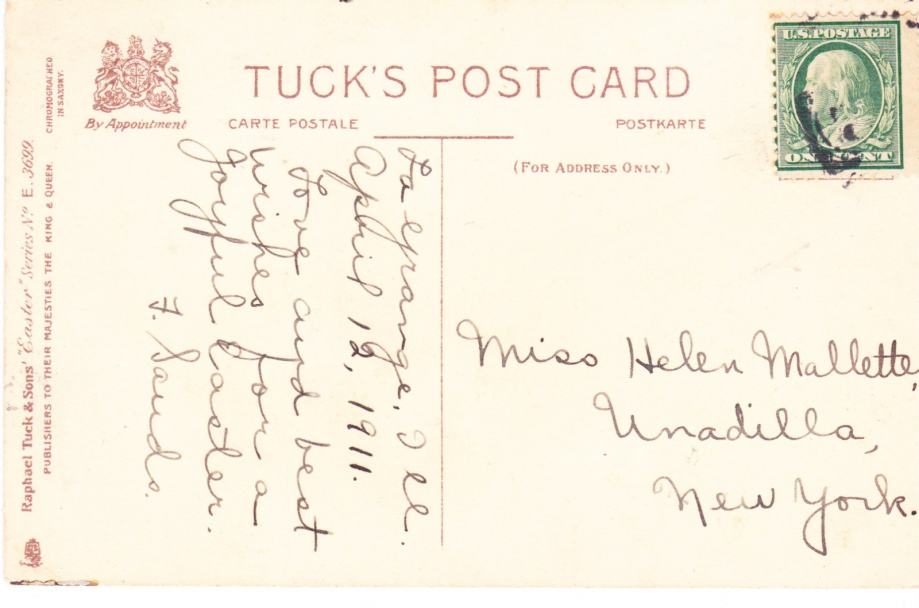 TUCK'S POST CARD
By Appointment
CARTE POSTALE
POSTKARTE
(FOR ADDRESS ONLY.)
U.S. POSTAGE
ONE CENT
CHROMOGRAPHED
IN SAXONY.
Raphael Tuck & Sons' "Easter" Series No. E. 3699.
PUBLISHERS TO THEIR MAJESTIES THE KING & QUEEN.
La Grange, Ill.
April 12, 1911.
Love and best
wishes for a
Joyful Easter.
F. Sauds.
Miss Helen Mallette,
Unadilla,
New York.